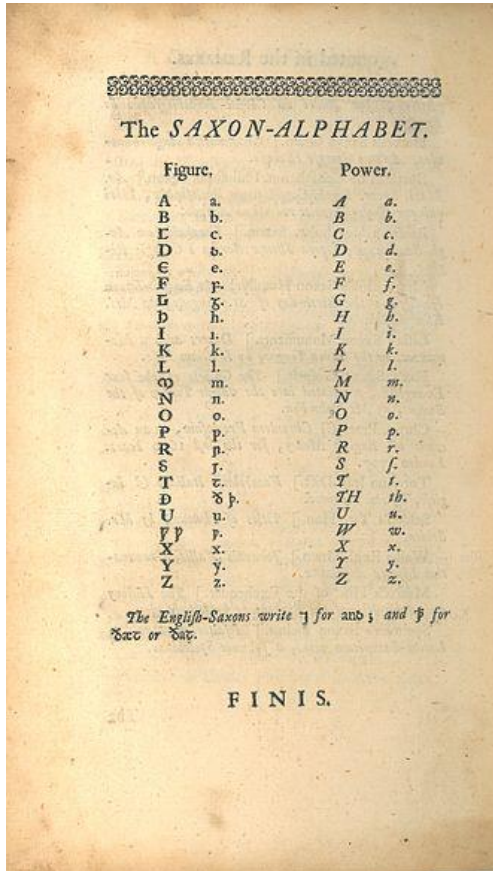 The SAXON-ALPHABET.
Figure. Power.
A a. A a.
B b. B b.
Ꞇ c. C c.
D ꝺ. D d.
Є e. E e.
F ꝼ. F f.
Ᵹ ᵹ. G g.
Þ h. H h.
I ı. I i.
K k. K k.
L l. L l.
ᛖ m. M m.
N n. N n.
O o. O o.
P p. P p.
R ꞃ. R r.
S ꞅ. S ſ.
T ꞇ. T t.
Ð ð þ. TH th.
U u. U u.
Ƿ ƿ ƿ. W w.
X x. X x.
Y ẏ. Y y.
Z z. Z z.
The Engliſh-Saxons write ⁊ for anꝺ ; and ꝥ for
ðæꞇ or ðaꞇ.
FINIS.